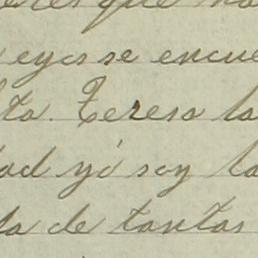 que
eyes se encue
ta. Teresa la
ad yó soy la
da de tantas